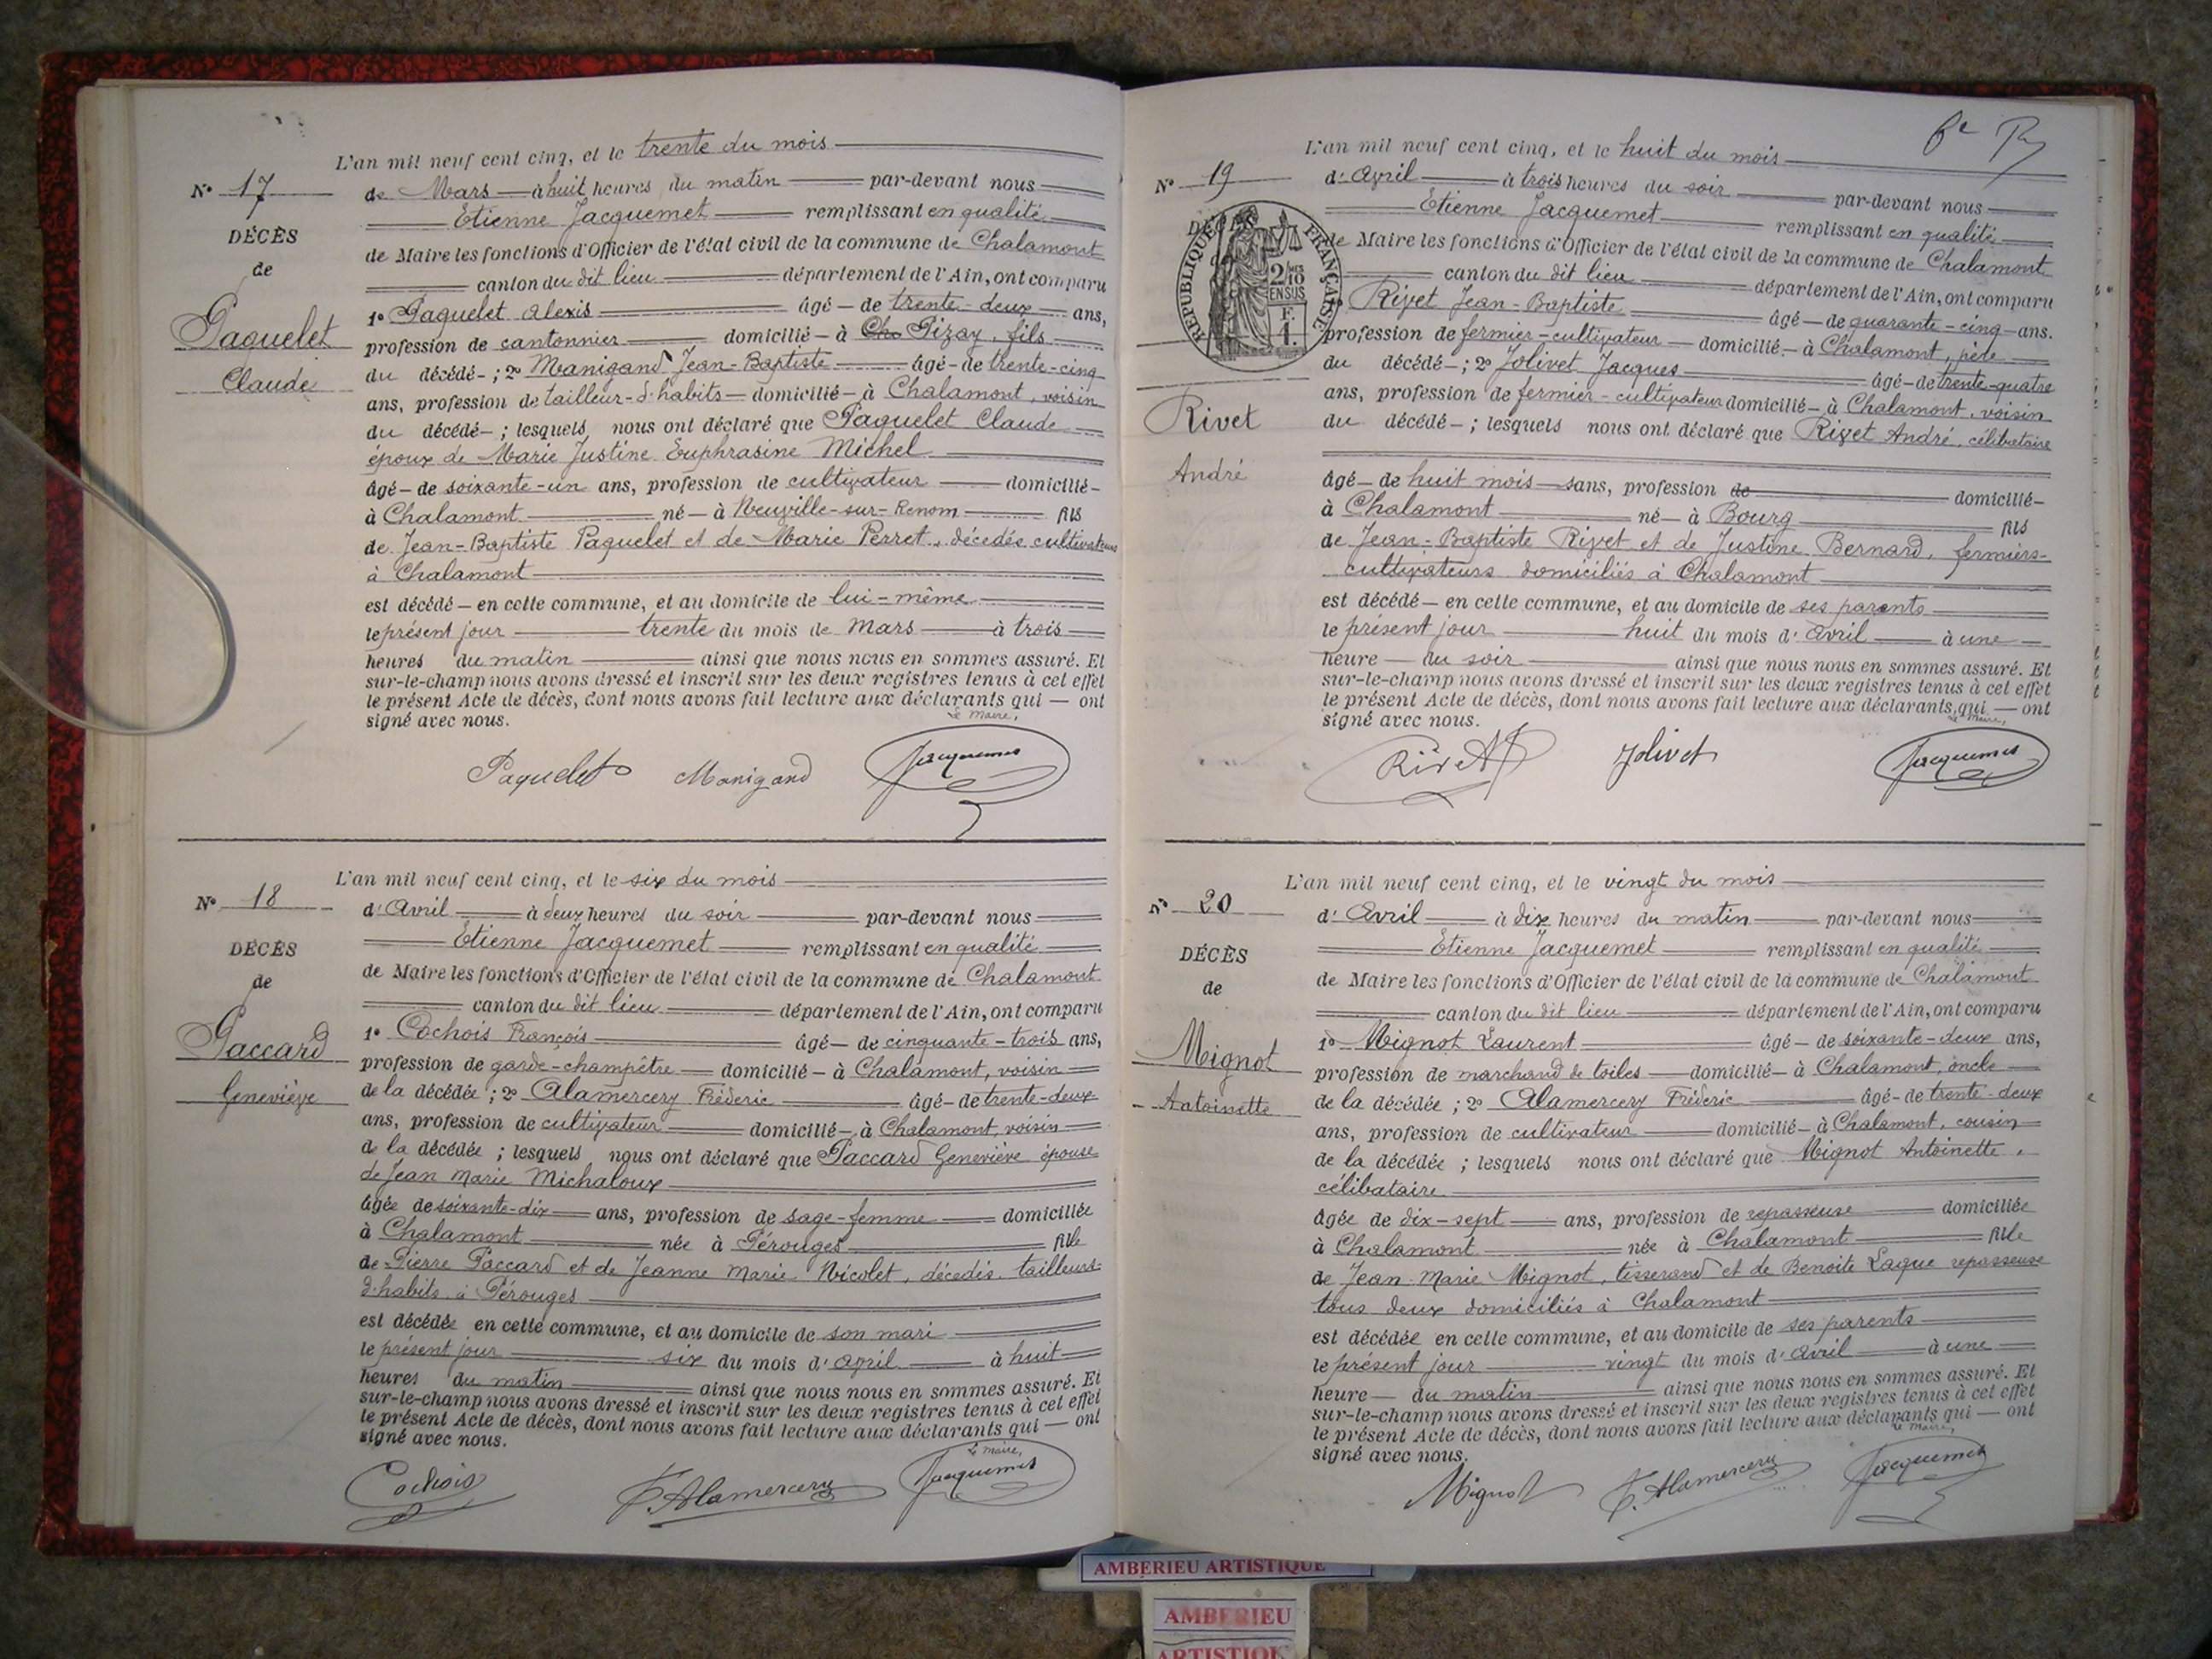 L'an mil neuf cent cinq, et le trente du mois
N° 17
de Mars à huit heures du matin par-devant nous
Etienne Jacquemet remplissant en qualité
DÉCÈS
de Maire les fonctions d'Officier de l'état civil de la commune de Chalamont
de
canton du dit lieu département de l'Ain, ont comparu
1° Paquelet Alexis âgé de trente-deux ans,
Paquelet
profession de cantonnier domicilié à Cha Pizay, fils
Claude
du décédé ; 2° Manigand Jean-Baptiste âgé de trente-cinq
ans, profession de tailleur-d'habits domicilié à Chalamont, voisin
du décédé ; lesquels nous ont déclaré que Paquelet Claude
époux de Marie Justine Euphrasine Michel
âgé de soixante-un ans, profession de cultivateur domicilié
à Chalamont né à Neuville-sur-Renom fils
de Jean-Baptiste Paquelet et de Marie Perret, décédés cultivateurs
à Chalamont
est décédé en cette commune, et au domicile de lui-même
le présent jour trente du mois de Mars à trois
heures du matin ainsi que nous nous en sommes assuré. Et
sur-le-champ nous avons dressé et inscrit sur les deux registres tenus à cet effet
le présent Acte de décès, dont nous avons fait lecture aux déclarants qui ont
signé avec nous.
Le Maire,
Paquelet Manigand Jacquemet
L'an mil neuf cent cinq, et le six du mois
N° 18
d'Avril à deux heures du soir par-devant nous
Etienne Jacquemet remplissant en qualité
DÉCÈS
de Maire les fonctions d'Officier de l'état civil de la commune de Chalamont
de
canton du dit lieu département de l'Ain, ont comparu
1° Cochois François âgé de cinquante-trois ans,
Paccard
profession de garde-champêtre domicilié à Chalamont, voisin
Geneviève
de la décédée ; 2° Alamercery Fréderic âgé de trente-deux
ans, profession de cultivateur domicilié à Chalamont, voisin
de la décédée ; lesquels nous ont déclaré que Paccard Geneviève épouse
de Jean Marie Michaloux
âgée de soixante-dix ans, profession de sage-femme domiciliée
à Chalamont née à Pérouges fille
de Pierre Paccard et de Jeanne Marie Nicolet, décedés tailleurs
d'habits à Pérouges
est décédée en cette commune, et au domicile de son mari
le présent jour six du mois d'avril à huit
heures du matin ainsi que nous nous en sommes assuré. Et
sur-le-champ nous avons dressé et inscrit sur les deux registres tenus à cet effet
le présent Acte de décès, dont nous avons fait lecture aux déclarants qui ont
signé avec nous.
Le Maire,
Cochois F. Alamercery Jacquemet
L'an mil neuf cent cinq, et le huit du mois
N° 19
d'Avril à trois heures du soir par-devant nous
Etienne Jacquemet remplissant en qualité
DÉCÈS
RÉPUBLIQUE FRANÇAISE
2/10 EN SUS
1 F.
de Maire les fonctions d'Officier de l'état civil de la commune de Chalamont
canton du dit lieu département de l'Ain, ont comparu
Rivet Jean-Baptiste âgé de quarante-cinq ans.
profession de fermier-cultivateur domicilié à Chalamont, père
du décédé ; 2° Jolivet Jacques âgé de trente-quatre
ans, profession de fermier-cultivateur domicilié à Chalamont, voisin
Rivet
du décédé ; lesquels nous ont déclaré que Rivet André, célibataire
André
âgé de huit mois sans, profession de domicilié
à Chalamont né à Bourg fils
de Jean-Baptiste Rivet et de Justine Bernard, fermiers-
cultivateurs domiciliés à Chalamont
est décédé en cette commune, et au domicile de ses parents
le présent jour huit du mois d'avril à une
heure du soir ainsi que nous nous en sommes assuré. Et
sur-le-champ nous avons dressé et inscrit sur les deux registres tenus à cet effet
le présent Acte de décès, dont nous avons fait lecture aux déclarants, qui ont
signé avec nous.
Le Maire,
Rivet Jolivet Jacquemet
L'an mil neuf cent cinq, et le vingt du mois
N° 20
d'Avril à dix heures du matin par-devant nous
Etienne Jacquemet remplissant en qualité
DÉCÈS
de Maire les fonctions d'Officier de l'état civil de la commune de Chalamont
de
canton du dit lieu département de l'Ain, ont comparu
1° Mignot Laurent âgé de soixante-deux ans,
Mignot
profession de marchand de toiles domicilié à Chalamont, oncle
Antoinette
de la décédée ; 2° Alamercery Fréderic âgé de trente-deux
ans, profession de cultivateur domicilié à Chalamont, cousin
de la décédée ; lesquels nous ont déclaré que Mignot Antoinette,
célibataire
âgée de dix-sept ans, profession de repasseuse domiciliée
à Chalamont née à Chalamont fille
de Jean-Marie Mignot, tisserand et de Benoite Laque repasseuse
tous deux domiciliés à Chalamont
est décédée en cette commune, et au domicile de ses parents
le présent jour vingt du mois d'Avril à une
heure du matin ainsi que nous nous en sommes assuré. Et
sur-le-champ nous avons dressé et inscrit sur les deux registres tenus à cet effet
le présent Acte de décès, dont nous avons fait lecture aux déclarants qui ont
signé avec nous.
Le Maire,
Mignot F. Alamercery Jacquemet
AMBERIEU ARTISTIQUE
AMBERIEU